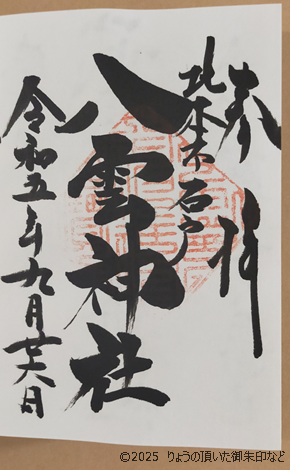 奉拝
北本市石戸
八雲神社
令和五年九月廿六日
©2025 りょうの頂いた御朱印など